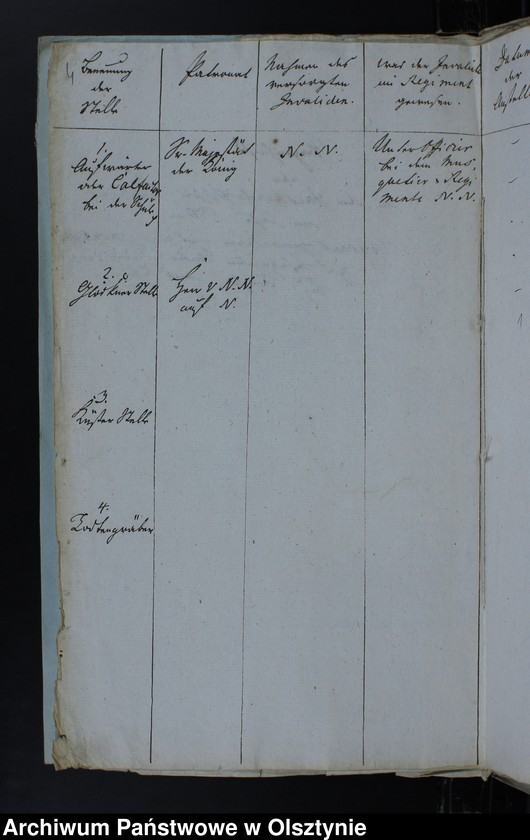 Benennung
der
Stelle
Patronat
Nahmen des
versorgten
Invaliden.
was der Invalide
im Regiment
gewesen.
Datum
der
1.
Aufwärter
oder Calfactor
bei der Schule
Sr. Majestät
der König
N. N.
Unter Officier
bei dem Mus,
quetier-Regi
mente N. N.
2.
Glöckner Stelle
Herr v N. N.
auf N.
3.
Küster Stelle
4.
Todtengräber
Archiwum Państwowe w Olsztynie